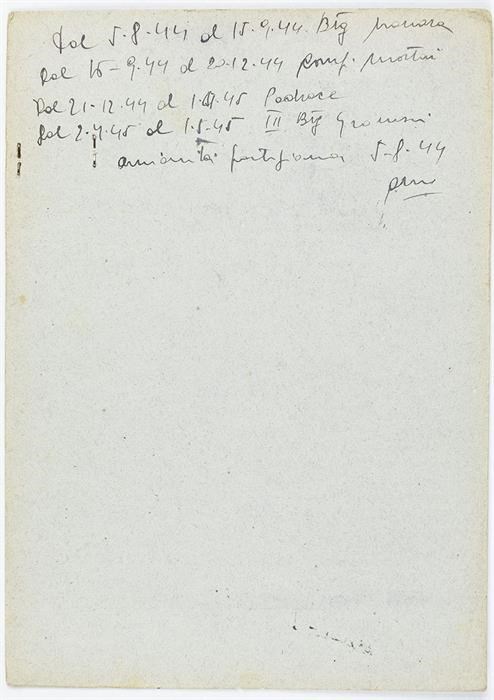 Dal 5-8-44 al 15-9-44 Btg
Dal 16-9-44 al 20-12-44 Comp. Mortai
Dal 21-12-44 al 1.4.45
Dal 2-4-45 al 1-5-45 III Btg Gramsci
anzianità partigiana 5-8-44